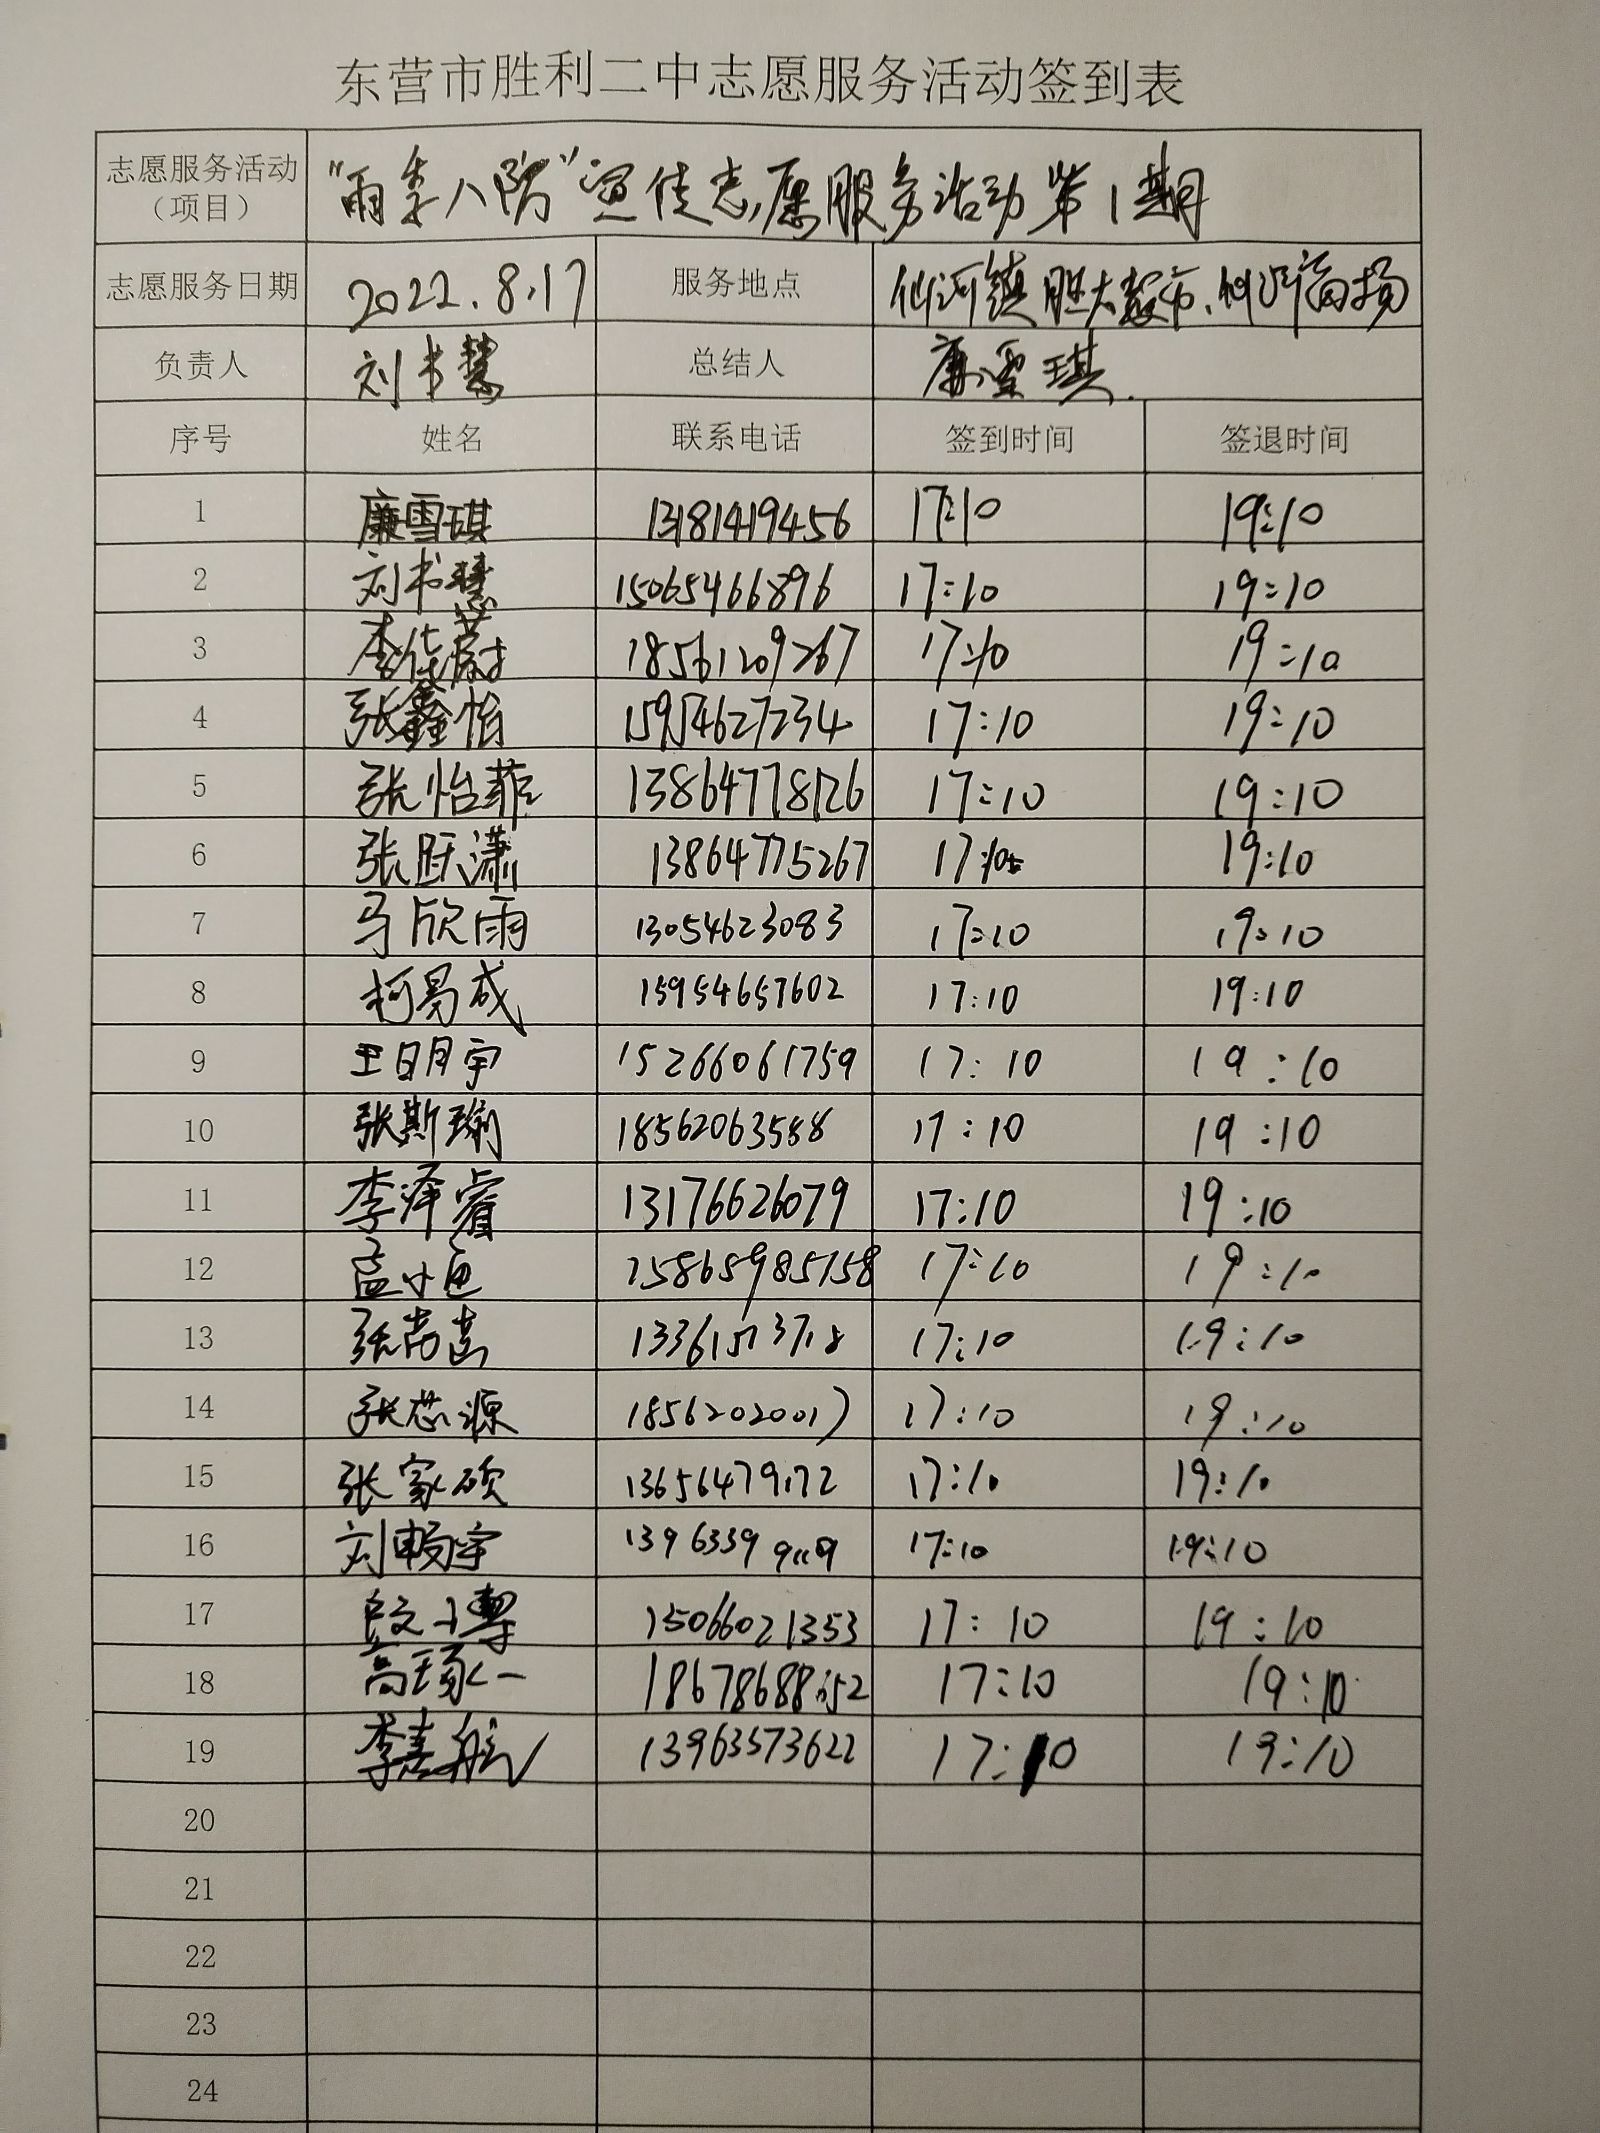 东营市胜利二中志愿服务活动签到表
志愿服务活动（项目） “雨季八防”宣传志愿服务活动第1期
志愿服务日期 2022.8.17 服务地点 仙河镇胆大超市、仙河商场
负责人 刘书慧 总结人 廉雪琪
序号 姓名 联系电话 签到时间 签退时间
1 廉雪琪 13181419456 17:10 19:10
2 刘书慧 15065466896 17:10 19:10
3 李佳蔚 18561209267 17:10 19:10
4 张鑫怡 15954627234 17:10 19:10
5 张怡菲 13864778126 17:10 19:10
6 张跃潇 13864775267 17:10 19:10
7 马欣雨 13054623083 17:10 19:10
8 柯易成 15954657602 17:10 19:10
9 王明宇 15266061759 17:10 19:10
10 张斯瑜 18562063588 17:10 19:10
11 李泽睿 13176626079 17:10 19:10
12 孟小 17:10 19:10
13 张尚 17:10 19:10
14 张芯源 18562020017 17:10 19:10
15 张家硕 13656479172 17:10 19:10
16 刘畅宇 17:10 19:10
17 15066021353 17:10 19:10
18 高 17:10 19:10
19 李 航 13963573622 17:10 19:10
20
21
22
23
24